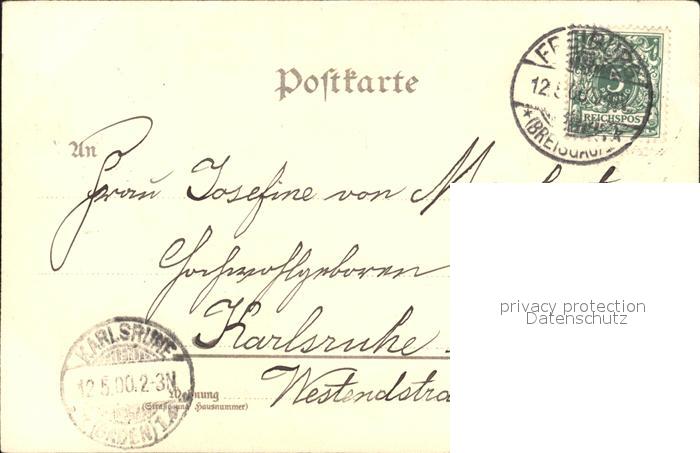 Postkarte
FREIBURG
12.5.00.
* (BREISGAU)
5
REICHSPOST
An
Frau Josefine von
Hochwohlgeboren
Karlsruhe
KARLSRUHE
12.5.00.2-3N.
(BADEN) 1.
Wohnung
(Straße und Hausnummer)
Westendstra
privacy protection
Datenschutz